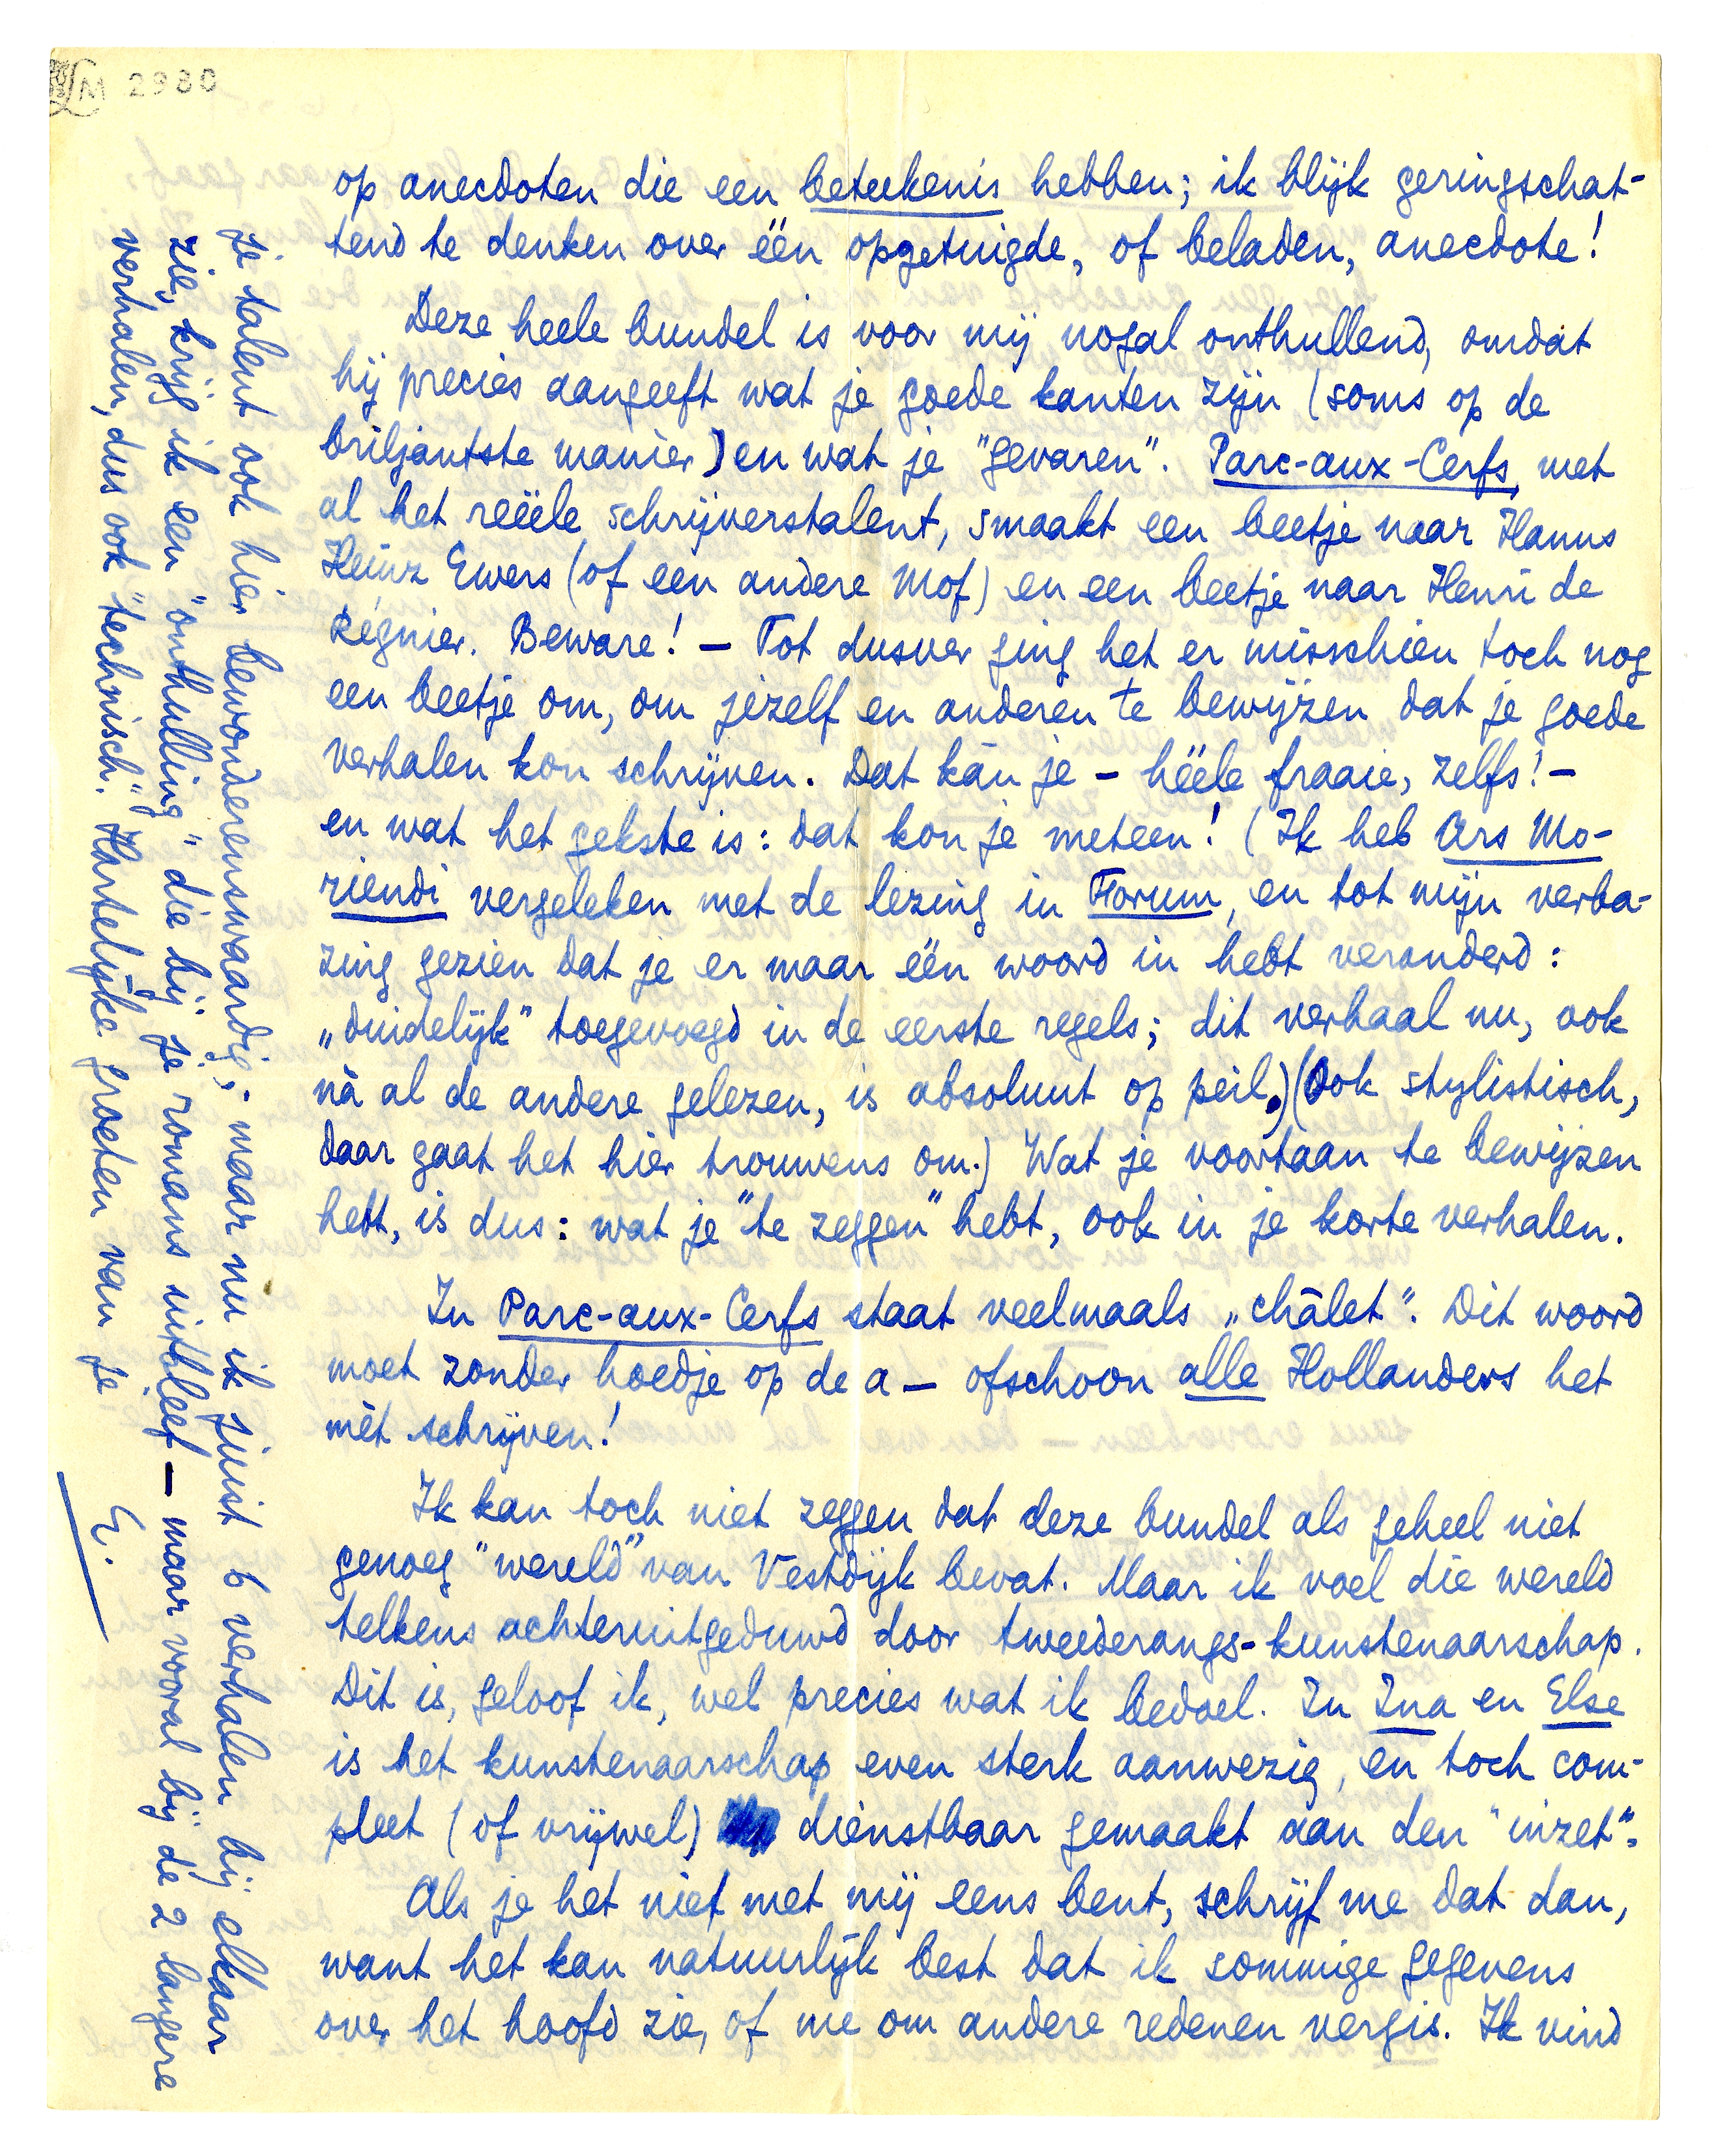 LM 2980
op anecdoten die een beteekenis hebben; ik blijk geringschat-
tend te denken over één opgetuigde, of beladen, anecdote!
Deze heele bundel is voor mij nogal onthullend, omdat
hij precies aangeeft wat je goede kanten zijn (soms op de
briljantste manier) en wat je "gevaren". Parc-aux-Cerfs, met
al het reëele schrijverstalent, smaakt een beetje naar Hanns
Heinz Ewers (of een andere Mof) en een beetje naar Henri de
Régnier. Beware! — Tot dusver ging het er misschien toch nog
een beetje om, om jezelf en anderen te bewijzen dat je goede
verhalen kon schrijven. Dat kán je — héële fraaie, zelfs! —
en wat het gekste is: dat kon je meteen! (Ik heb Ars Mo-
riendi vergeleken met de lezing in Forum, en tot mijn verba-
zing gezien dat je er maar één woord in hebt veranderd:
„duidelijk" toegevoegd in de eerste regels; dit verhaal nu, ook
ná al de andere gelezen, is absoluut op peil.) (Ook stylistisch,
daar gaat het hier trouwens om.) Wat je voortaan te bewijzen
hebt, is dus: wat je "te zeggen" hebt, ook in je korte verhalen.
In Parc-aux-Cerfs staat veelmaals „châlet". Dit woord
moet zonder hoedje op de a — ofschoon alle Hollanders het
mèt schrijven!
Ik kan toch niet zeggen dat deze bundel als geheel niet
genoeg "wereld" van Vestdijk bevat. Maar ik voel die wereld
telkens achteruitgeduwd door tweederangs-kunstenaarschap.
Dit is, geloof ik, wel precies wat ik bedoel. In Ina en Else
is het kunstenaarschap even sterk aanwezig, en toch com-
pleet (of vrijwel) dienstbaar gemaakt aan den "inzet".
Als je het niet met mij eens bent, schrijf me dat dan,
want het kan natuurlijk best dat ik sommige gegevens
over het hoofd zie, of me om andere redenen vergis. Ik vind
je talent ook hier bewonderenswaardig; maar nu ik juist 6 verhalen bij elkaar
zie, krijg ik een "onthulling" die bij je romans uitbleef — maar vooral bij de 2 langere
verhalen, dus ook "technisch". Hartelijke groeten van je
E.